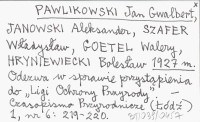 PAWLIKOWSKI Jan Gwalbert,
JANOWSKI Aleksander, SZAFER
Władysław, GOETEL Walery,
HRYNIEWIECKI Bolesław 1927 m.
Odezwa w sprawie przystąpienia
do „Ligi Ochrony Przyrody". –
Czasopismo Przyrodnicze (Łódź)
1, nr 6: 219-220.